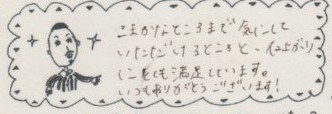 こまかなところまで気にして
いただけるところと、仕上がり
にとても満足しています。
いつもありがとうございます!